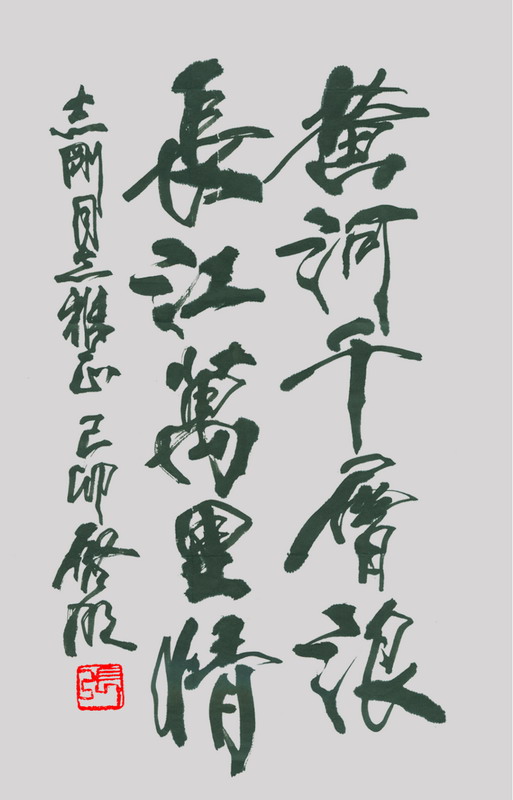 黄河千層浪
長江萬里情
志剛同志雅正 己卯 啓明
張